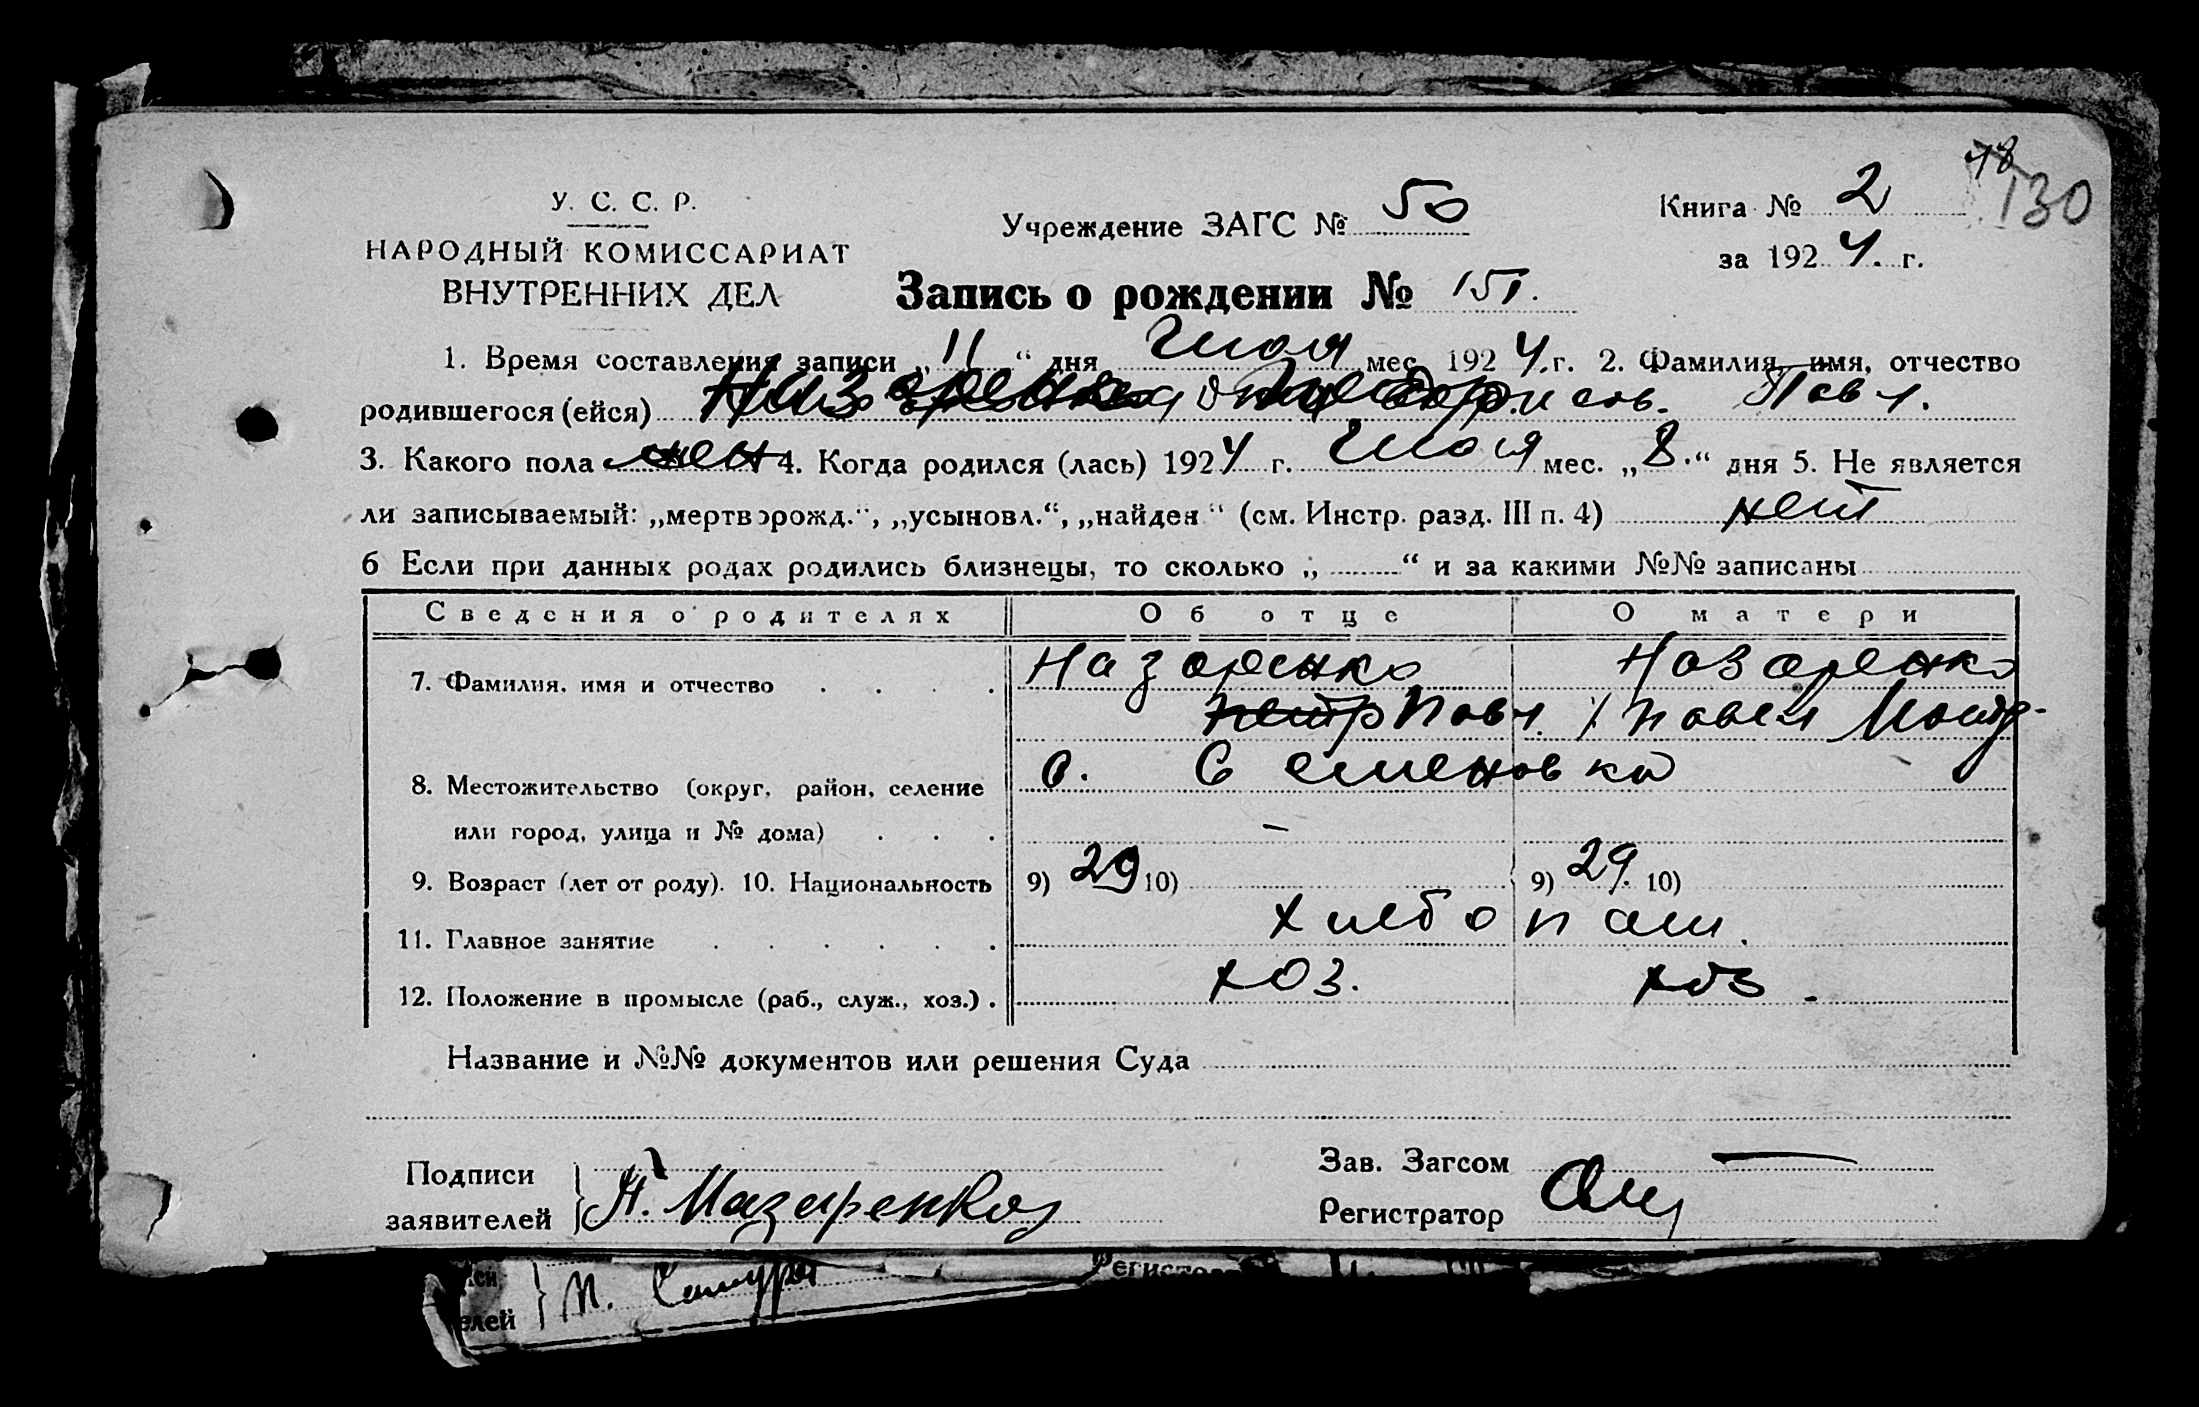 78
130
У. С. С. Р.
НАРОДНЫЙ КОМИССАРИАТ
ВНУТРЕННИХ ДЕЛ
Учреждение ЗАГС № 50
Книга № 2
за 1924. г.
Запись о рождении № 151.
1. Время составления записи „11“ дня Июля мес. 1924.г. 2. Фамилия, имя, отчество
родившегося (ейся) Назаренко Павл.
3. Какого пола жен 4. Когда родился (лась) 1924 г. Июля мес. „8.“ дня 5. Не является
ли записываемый: „мертворожд.“, „усыновл.“, „найден“ (см. Инстр. разд. III п. 4) нет
6 Если при данных родах родились близнецы, то сколько „ “ и за какими №№ записаны
Сведения о родителях Об отце О матери
7. Фамилия, имя и отчество Назаренко Назаренко
Петр Павл. Павел
8. Местожительство (округ, район, селение с. Семеновка
или город, улица и № дома) –
9. Возраст (лет от роду). 10. Национальность 9) 29 10) 9) 29. 10)
11. Главное занятие хлебопаш.
12. Положение в промысле (раб., служ., хоз.) хоз. хоз.
Название и №№ документов или решения Суда
Подписи
заявителей } П. Назаренко
Зав. Загсом
Регистратор
елей